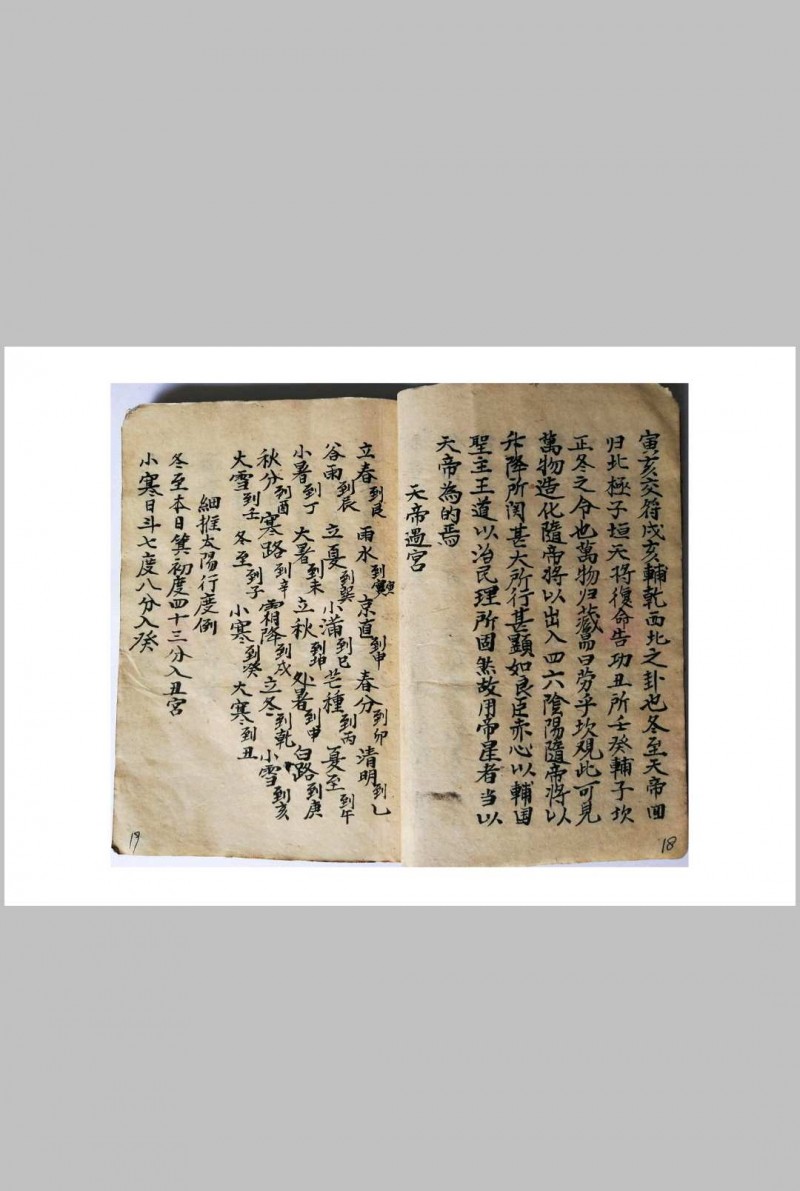 寅亥交符戊亥輔乾西北之卦也冬至天帝回
归北極子垣天將復命告功丑所壬癸輔子坎
正冬之令也萬物归藏而曰劳乎坎观此可見
萬物造化隨帝將以出入四六陰陽隨帝將以
升降所関甚大所行甚顯如良臣亦心以輔国
聖主王道以治民理所固然故用帝星者当以
天帝為的焉
天帝過宮
18
立春到艮 雨水到寅 京直到甲 春分到卯 清明到乙
谷雨到辰 立夏到巽 小满到巳 芒種到丙 夏至到午
小暑到丁 大暑到未 立秋到坤 处暑到申 白路到庚
秋分到酉 寒路到辛 霜降到戌 立冬到乾 小雪到亥
大雪到壬 冬至到子 小寒到癸 大寒到丑
細推太陽行度例
冬至本日箕初度四十三分入丑宮
小寒日斗七度八分入癸
19